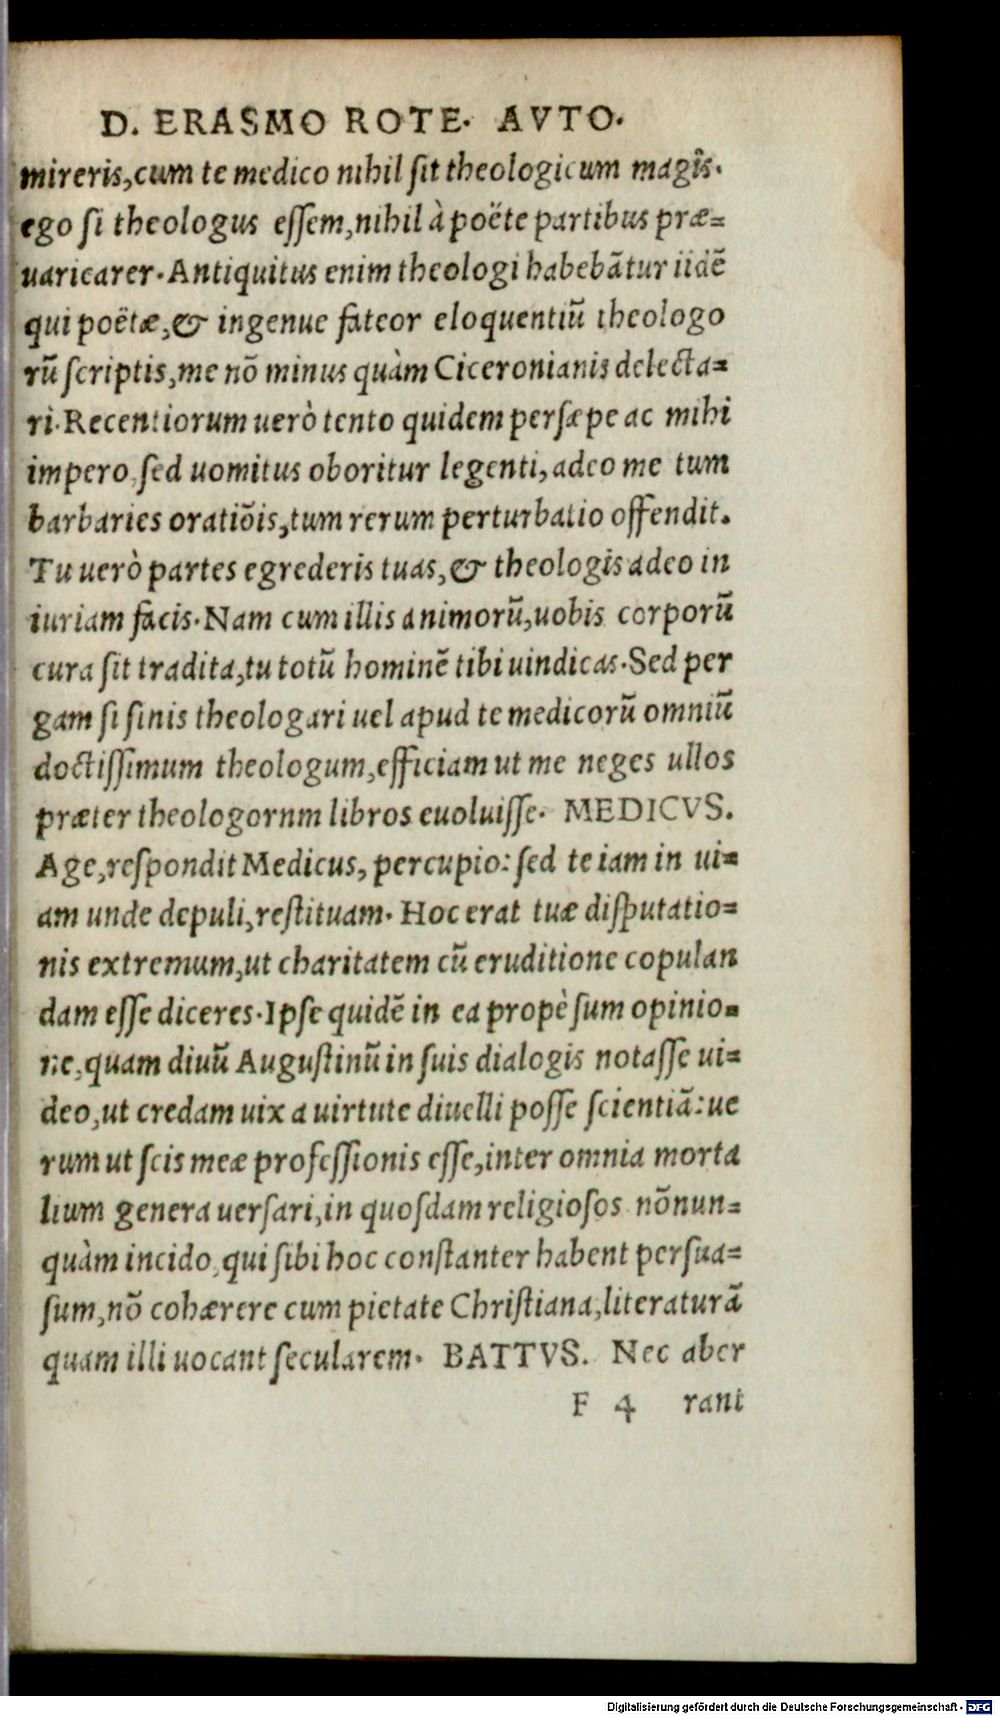 D. ERASMO ROTE. AVTO.
mireris,cum te medico nihil ſit theologicum magis.
ego ſi theologus eſſem,nihil à poëte partibus præ=
uaricarer.Antiquitus enim theologi habebãtur iidẽ
qui poëtæ,& ingenue fateor eloquentiũ theologo
rũ ſcriptis,me nõ minus quàm Ciceronianis delecta=
ri.Recentiorum uerò tento quidem perſæpe ac mihi
impero,ſed uomitus oboritur legenti,adeo me tum
barbaries oratiõis,tum rerum perturbatio offendit.
Tu uerò partes egrederis tuas,& theologis adeo in
iuriam facis.Nam cum illis animorũ,uobis corporũ
cura ſit tradita,tu totũ hominẽ tibi uindicas.Sed per
gam ſi ſinis theologari uel apud te medicorũ omniũ
doctiſſimum theologum,efficiam ut me neges ullos
præter theologornm libros euoluiſſe. MEDICVS.
Age,reſpondit Medicus, percupio: ſed te iam in ui=
am unde depuli,reſtituam. Hoc erat tuæ diſputatio=
nis extremum,ut charitatem cũ eruditione copulan
dam eſſe diceres.Ipſe quidẽ in ea propè ſum opinio=
ne,quam diuũ Auguſtinũ in ſuis dialogis notaſſe ui=
deo,ut credam uix a uirtute diuelli poſſe ſcientiã:ue
rum ut ſcis meæ profeſſionis eſſe,inter omnia morta
lium genera uerſari,in quoſdam religioſos nõnun=
quàm incido,qui ſibi hoc conſtanter habent perſua=
ſum,nõ cohærere cum pietate Chriſtiana,literaturã
quam illi uocant ſecularem. BATTVS. Nec aber
F 4 rant
Digitalisierung gefördert durch die Deutsche Forschungsgemeinschaft - DFG